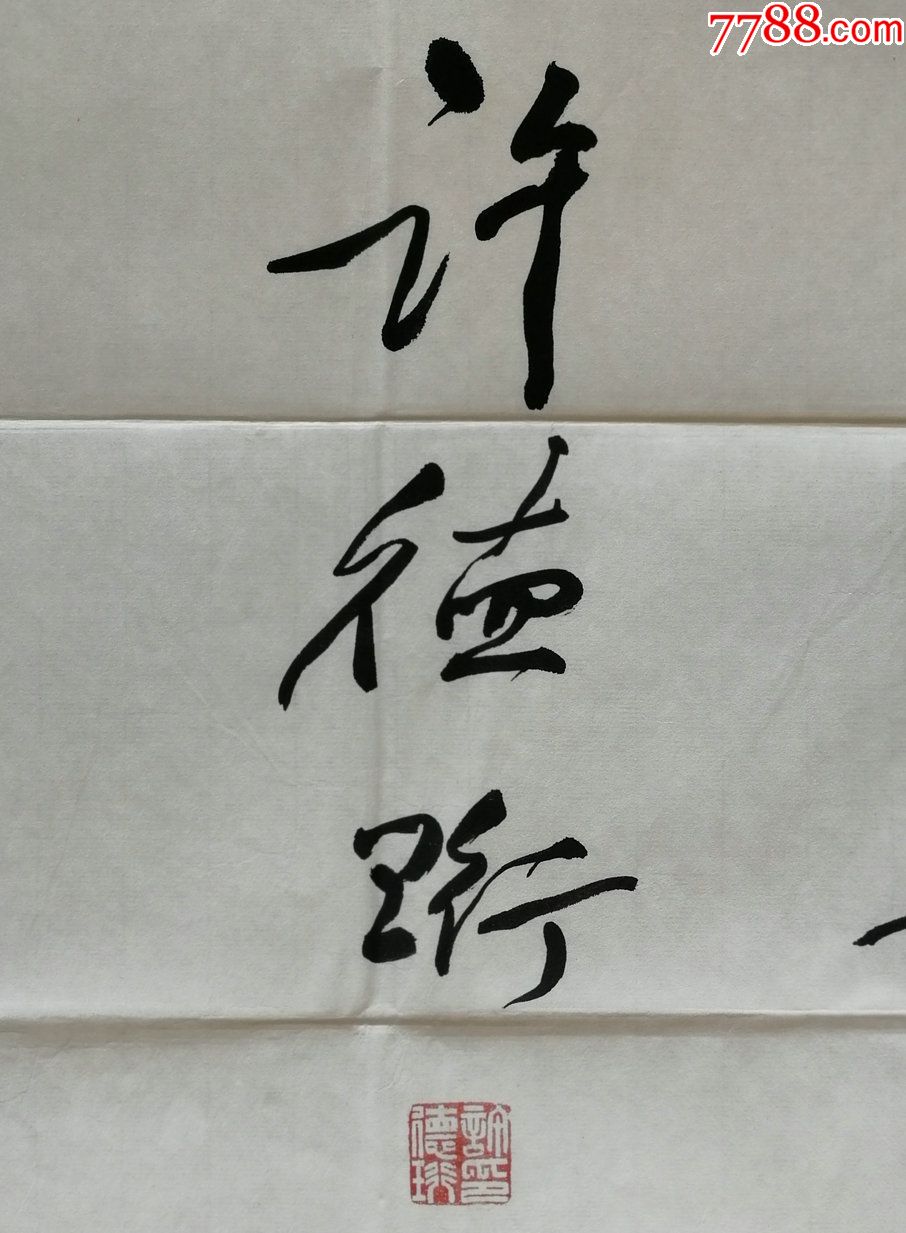 7788.com
许
德
珩
許印
德珩